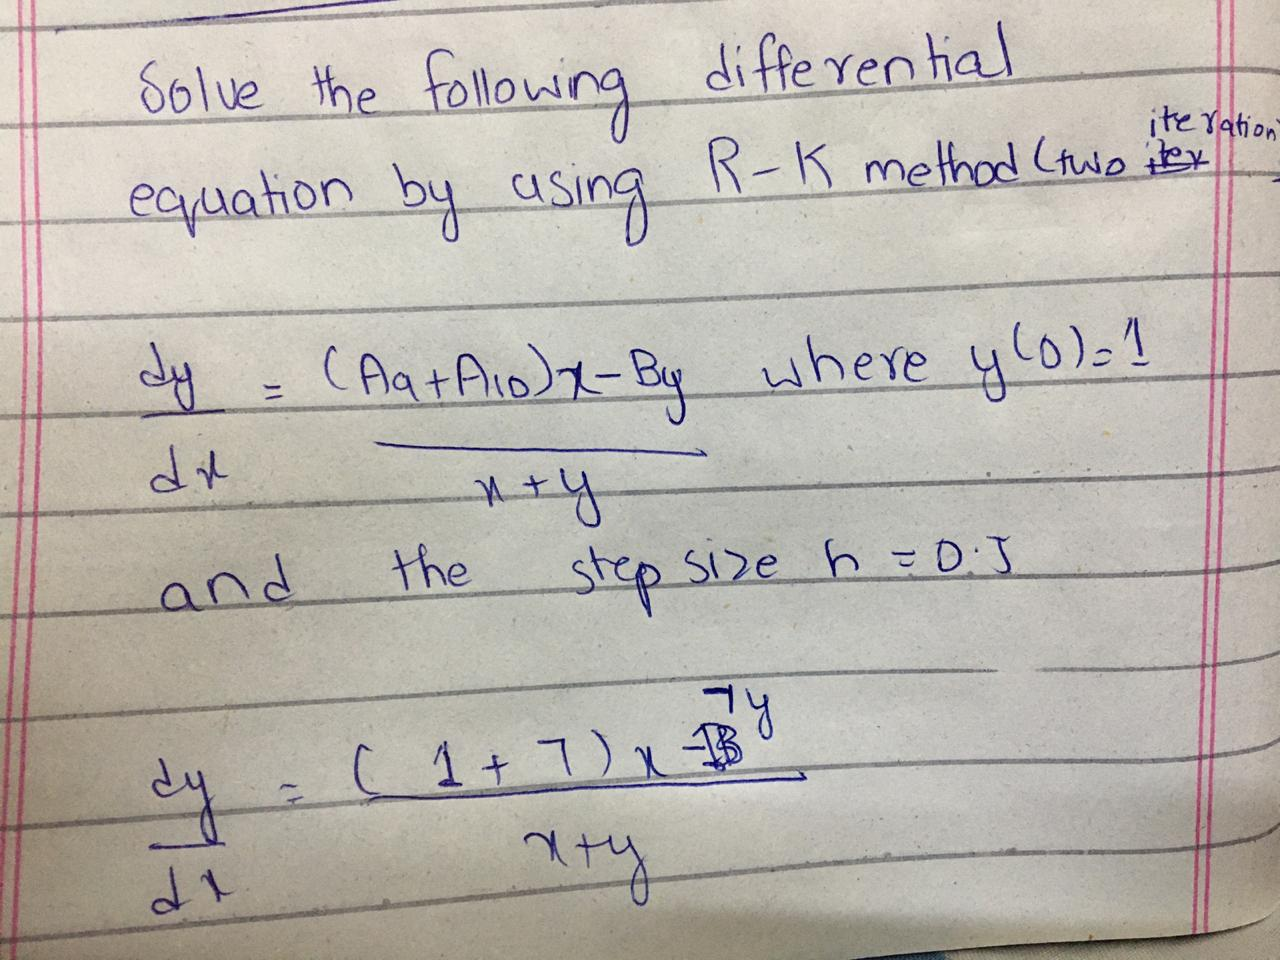 Solve the following differential
equation by using R-K method (two iteration
dy/dx = (A9+A10)x-By/x+y where y(0)=1
and the step size h = 0.5
dy/dx = (1+7)x-7y/x+y